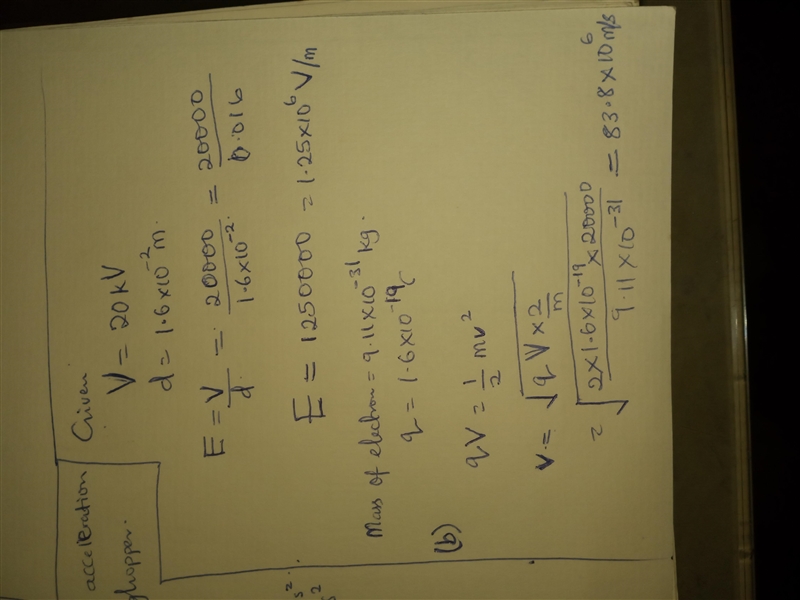 acceleration
Given
V = 20 kV
d = 1.6×10⁻² m.
E = V/d. = 20000/1.6×10⁻². = 20000/0.016
E = 1250000 = 1.25×10⁶ V/m
Mass of electron = 9.11×10⁻³¹ kg.
q = 1.6×10⁻¹⁹ C
(b)
qV = 1/2 mv²
v = √(qV × 2/m)
= √(2×1.6×10⁻¹⁹×20000/9.11×10⁻³¹) = 83.8×10⁶ m/s